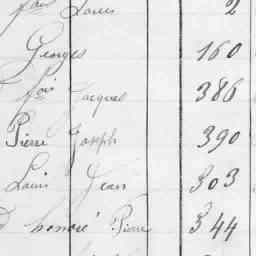 fois Louis 2
Georges 160
fois Jacques 386
Pierre Joseph 390
Louis Jean 303
honoré Pierre 344